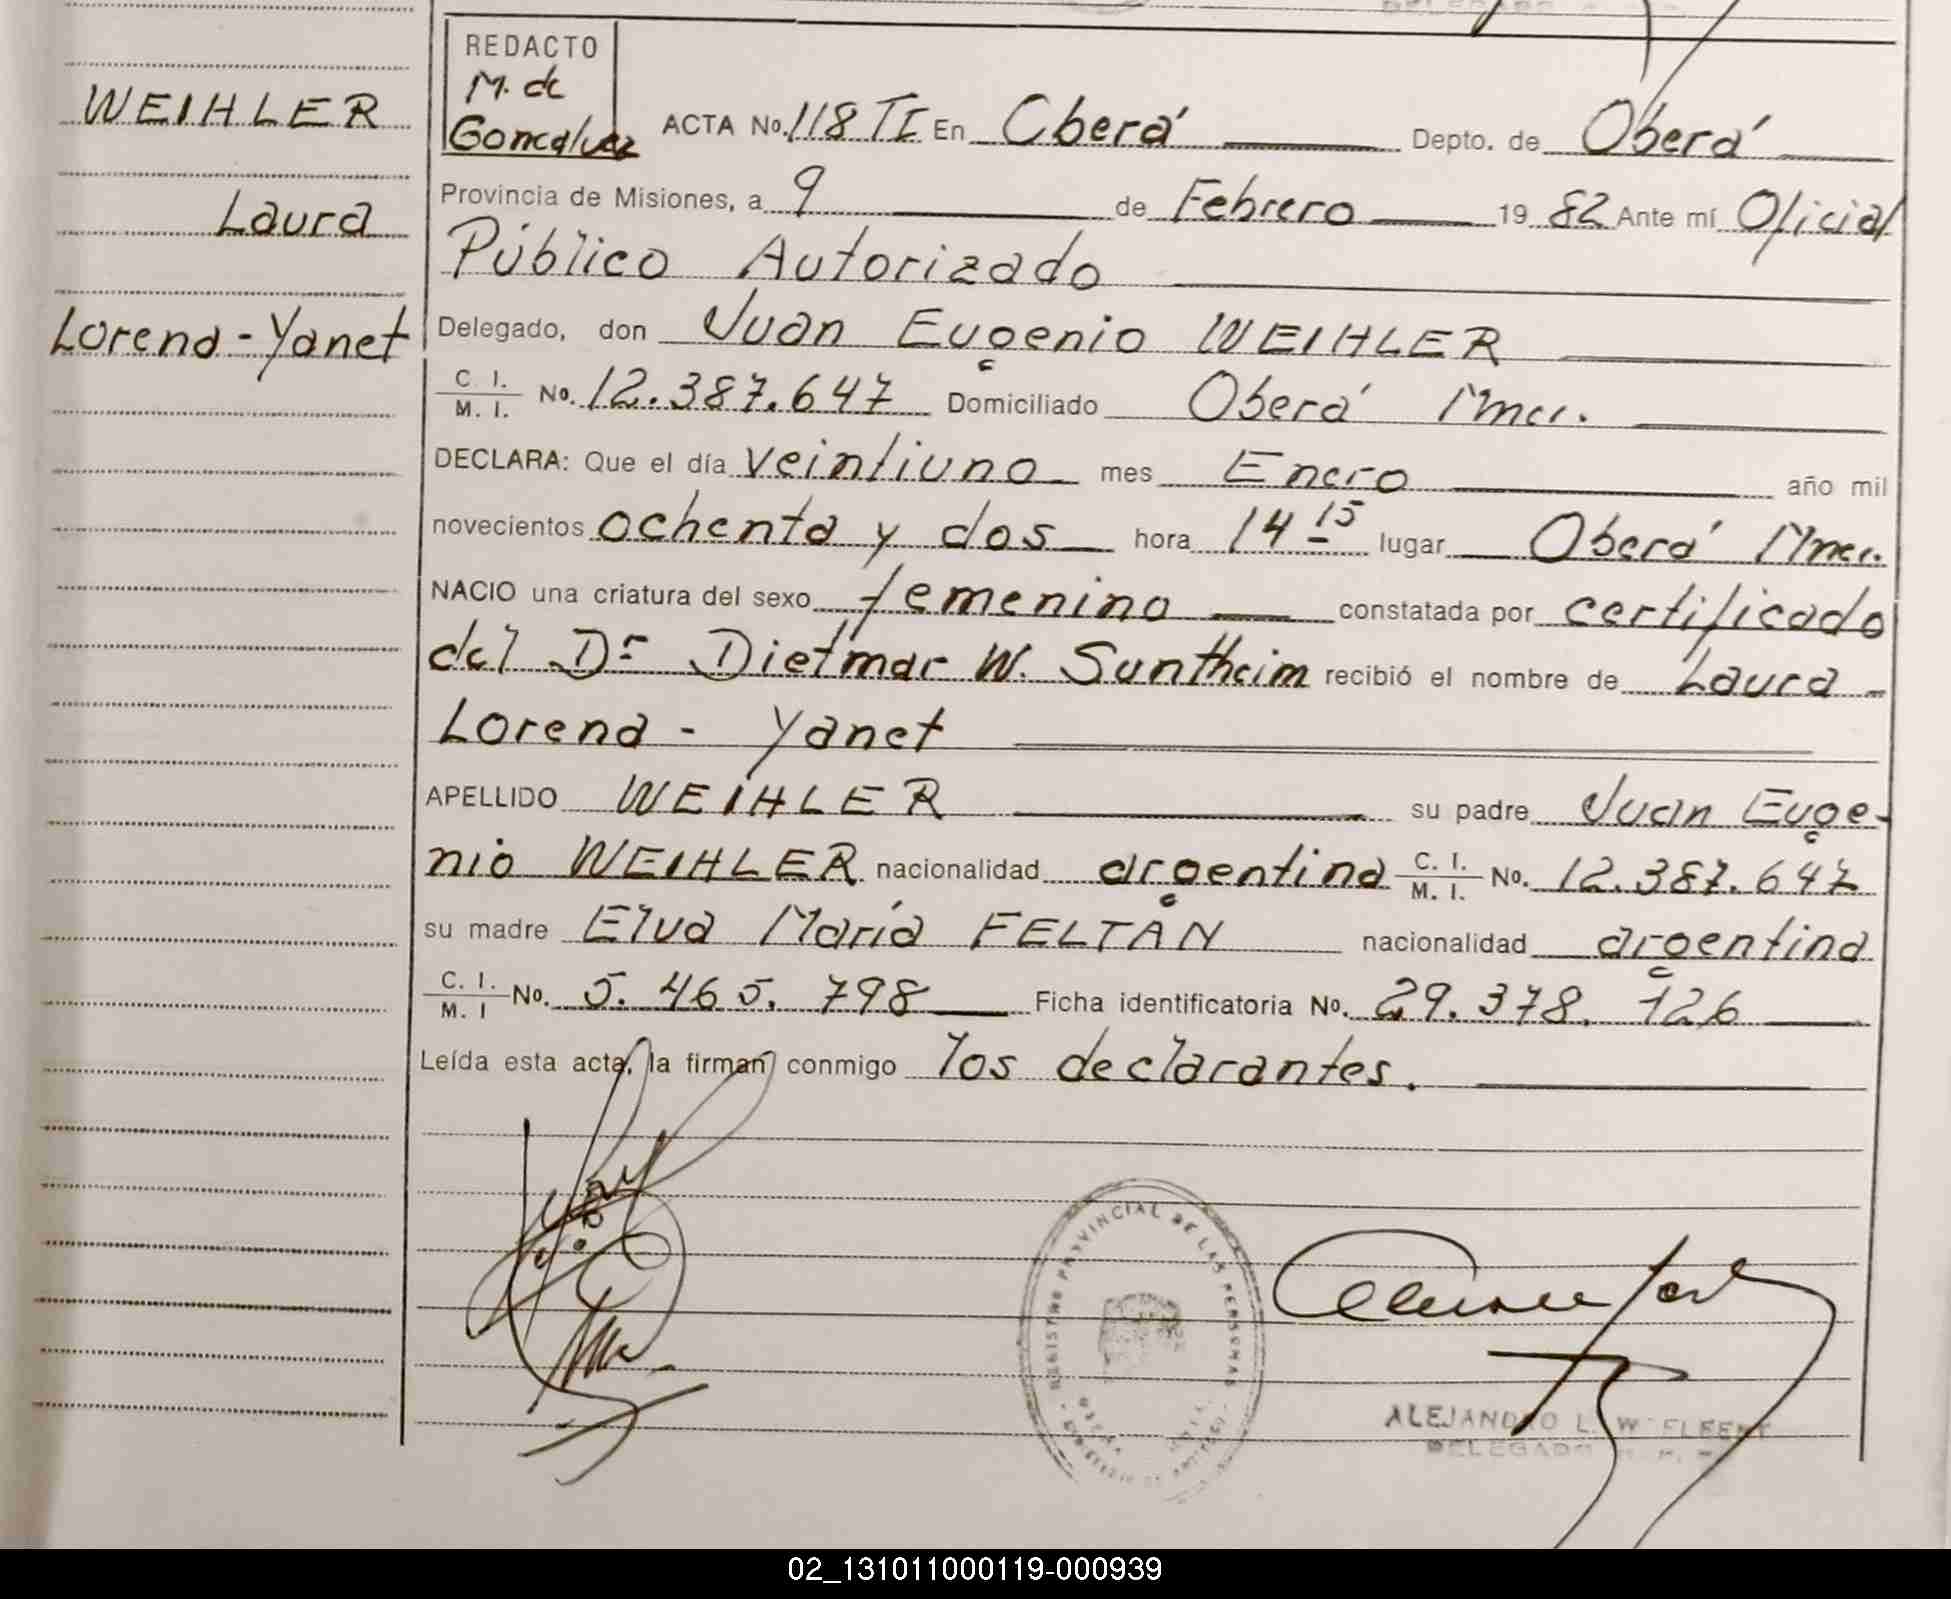 WEIHLER
Laura
Lorena - Yanet
REDACTO
M. de
Goncalvez
ACTA No. 118 TI En Oberá Depto. de Oberá
Provincia de Misiones, a 9 de Febrero 19 82 Ante mí Oficial
Público Autorizado
Delegado, don Juan Eugenio WEIHLER
C. I. / M. I. No. 12.387.647 Domiciliado Oberá Mnes.
DECLARA: Que el día veintiuno mes Enero año mil
novecientos ochenta y dos hora 14 15 lugar Oberá Mnes.
NACIO una criatura del sexo femenino constatada por certificado
del Dr Dietmar W. Suntheim recibió el nombre de Laura -
Lorena - Yanet
APELLIDO WEIHLER su padre Juan Euge-
nio WEIHLER nacionalidad argentina C. I. / M. I. No. 12.387.647
su madre Elva María FELTAN nacionalidad argentina
C. I. / M. I No. 5.465.798 Ficha identificatoria No. 29.378.126
Leída esta acta, la firman conmigo los declarantes.
REGISTRO PROVINCIAL DE LAS PERSONAS
ALEJANDRO L.
DELEGADO
02_131011000119-000939